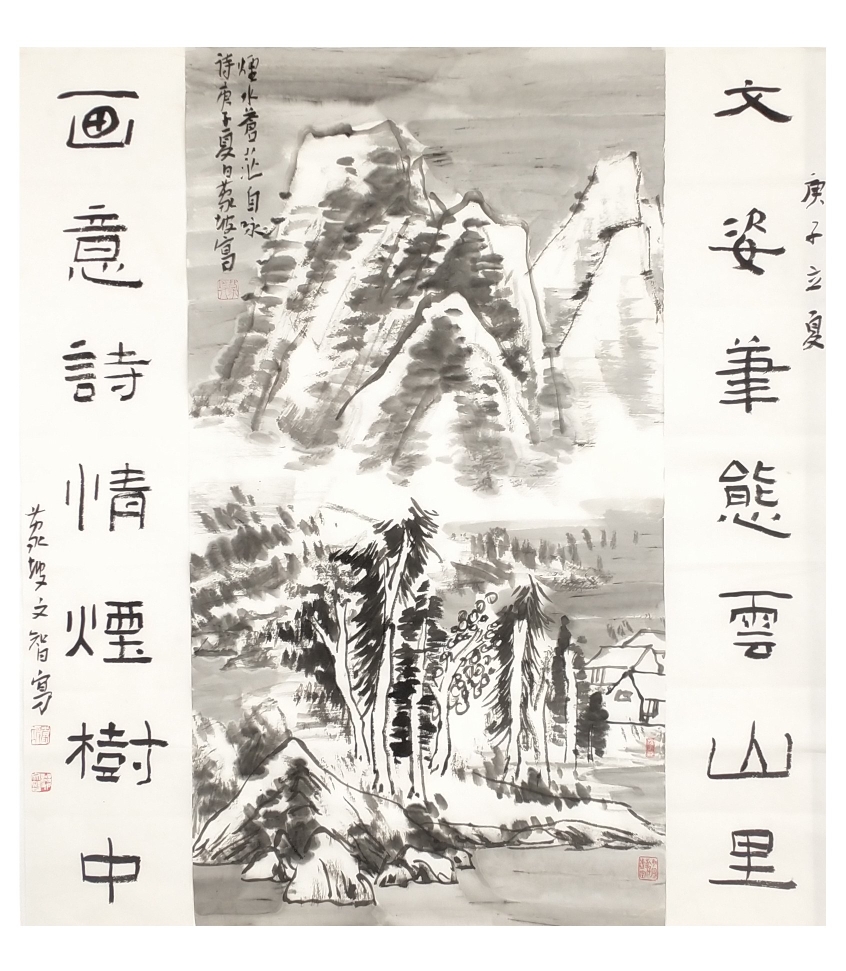 庚子立夏
文姿筆態雲山里
煙水蒼茫自咏
詩庚子夏日蒙坡寫
画意詩情煙樹中
蒙坡文智寫